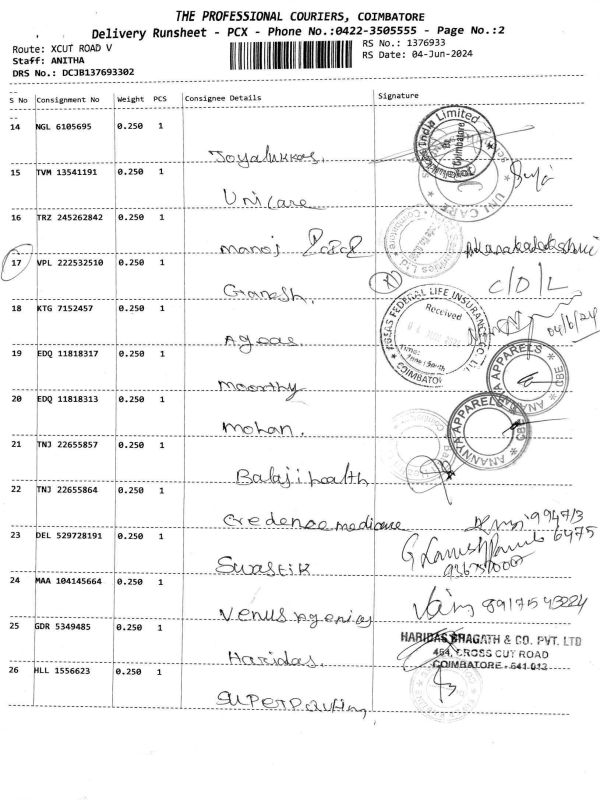 THE PROFESSIONAL COURIERS, COIMBATORE
Delivery Runsheet - PCX - Phone No.:0422-3505555 - Page No.:2
Route: XCUT ROAD V
RS No.: 1376933
Staff: ANITHA
RS Date: 04-Jun-2024
DRS No.: DCJB137693302
S No Consignment No Weight PCS Consignee Details Signature
14 NGL 6105695 0.250 1
Joyalukkas.
India Limited
Coimbatore
15 TVM 13541191 0.250 1
Unicare
UNI CARE
16 TRZ 245262842 0.250 1
manoj
17 VPL 222532510 0.250 1
Ganesh.
C/O/L
18 KTG 7152457 0.250 1
Ageas
AGEAS FEDERAL LIFE INSURANCE CO. Ltd.
Received
COIMBATORE
04/6/24
19 EDQ 11818317 0.250 1
moorthy
ANANNYA APPARELS CBE
20 EDQ 11818313 0.250 1
mohan.
ANANNYA APPARELS CBE
21 TNJ 22655857 0.250 1
Balaji health
22 TNJ 22655864 0.250 1
Credence medicare
99473
6475
23 DEL 529728191 0.250 1
Swastik
24 MAA 104145664 0.250 1
Venus agencies
25 GDR 5349485 0.250 1
Haridas.
HARIDAS BHAGATH & CO. PVT. LTD
464, CROSS CUT ROAD
COIMBATORE - 641 012
26 HLL 1556623 0.250 1